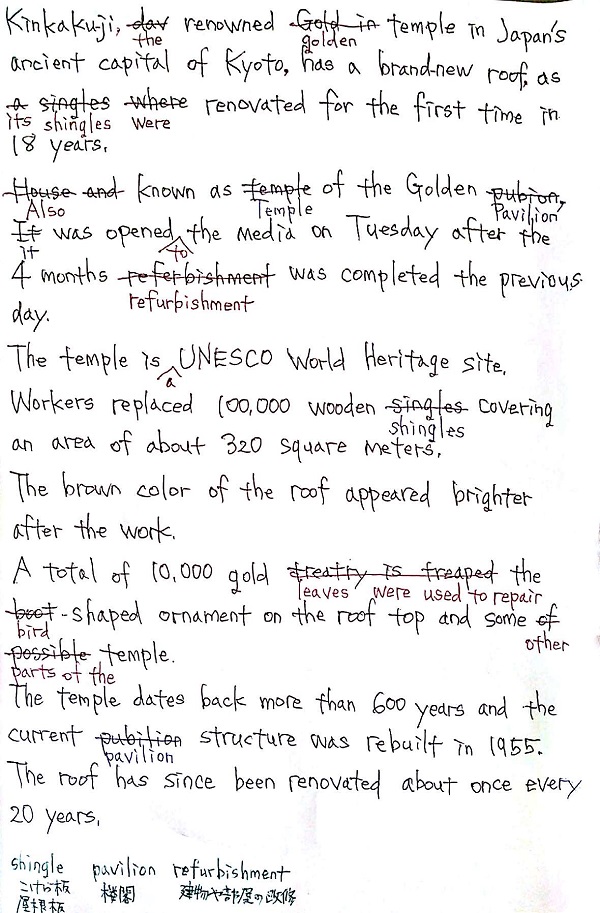 Kinkaku-ji, dav renowned Gold in temple in Japan's
the golden
ancient capital of Kyoto, has a brand-new roof, as
a singles where renovated for the first time in
its shingles were
18 years.
House and known as temple of the Golden pubion,
Also Temple Pavilion
It was opened the media on Tuesday after the
it to
4 months referbishment was completed the previous
refurbishment
day.
The temple is UNESCO World Heritage site.
a
Workers replaced 100,000 wooden singles covering
shingles
an area of about 320 square meters.
The brown color of the roof appeared brighter
after the work.
A total of 10,000 gold treatry is freaped the
leaves were used to repair
boot-shaped ornament on the roof top and some of
bird other
possible temple.
parts of the
The temple dates back more than 600 years and the
current pubition structure was rebuilt in 1955.
pavilion
The roof has since been renovated about once every
20 years.
shingle pavilion refurbishment
こけら板 楼閣 建物や部屋の改修
屋根板